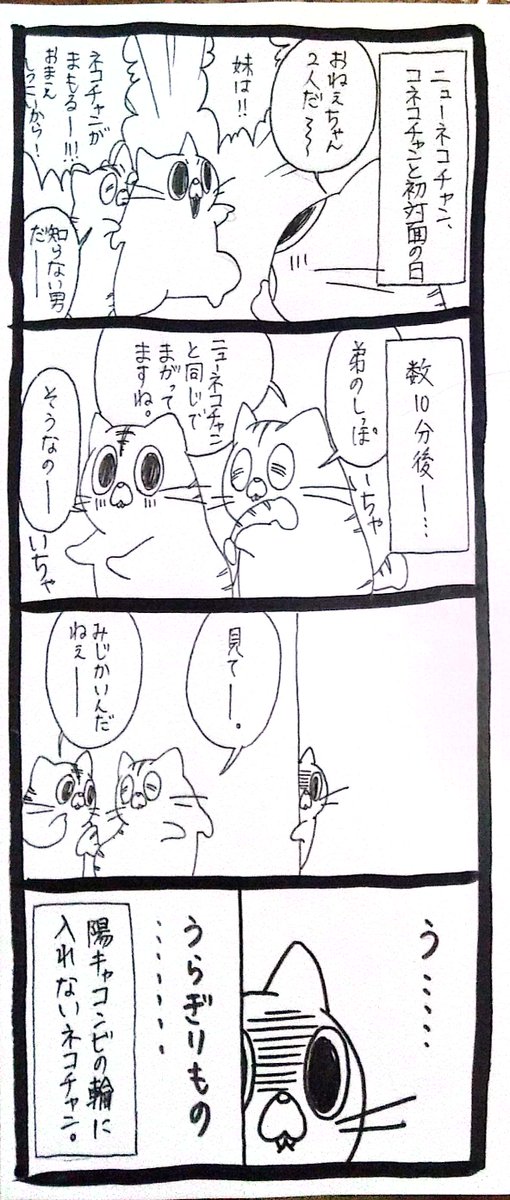 ニューネコチャン、
コネコチャンと初対面の日
おねぇちゃん
2人だ〜〜
妹は!!
ネコチャンが
まもるー!!!
おまえ
しつこいから!
知らない男
だーー
数10分後ー…
弟のしっぽ
ニューネコチャン
と同じで
まがって
ますね。
そうなのー
いちゃ
いちゃ
見てー。
みじかいんだ
ねぇーー
う……
うらぎりもの
………
陽キャコンビの輪に
入れないネコチャン。